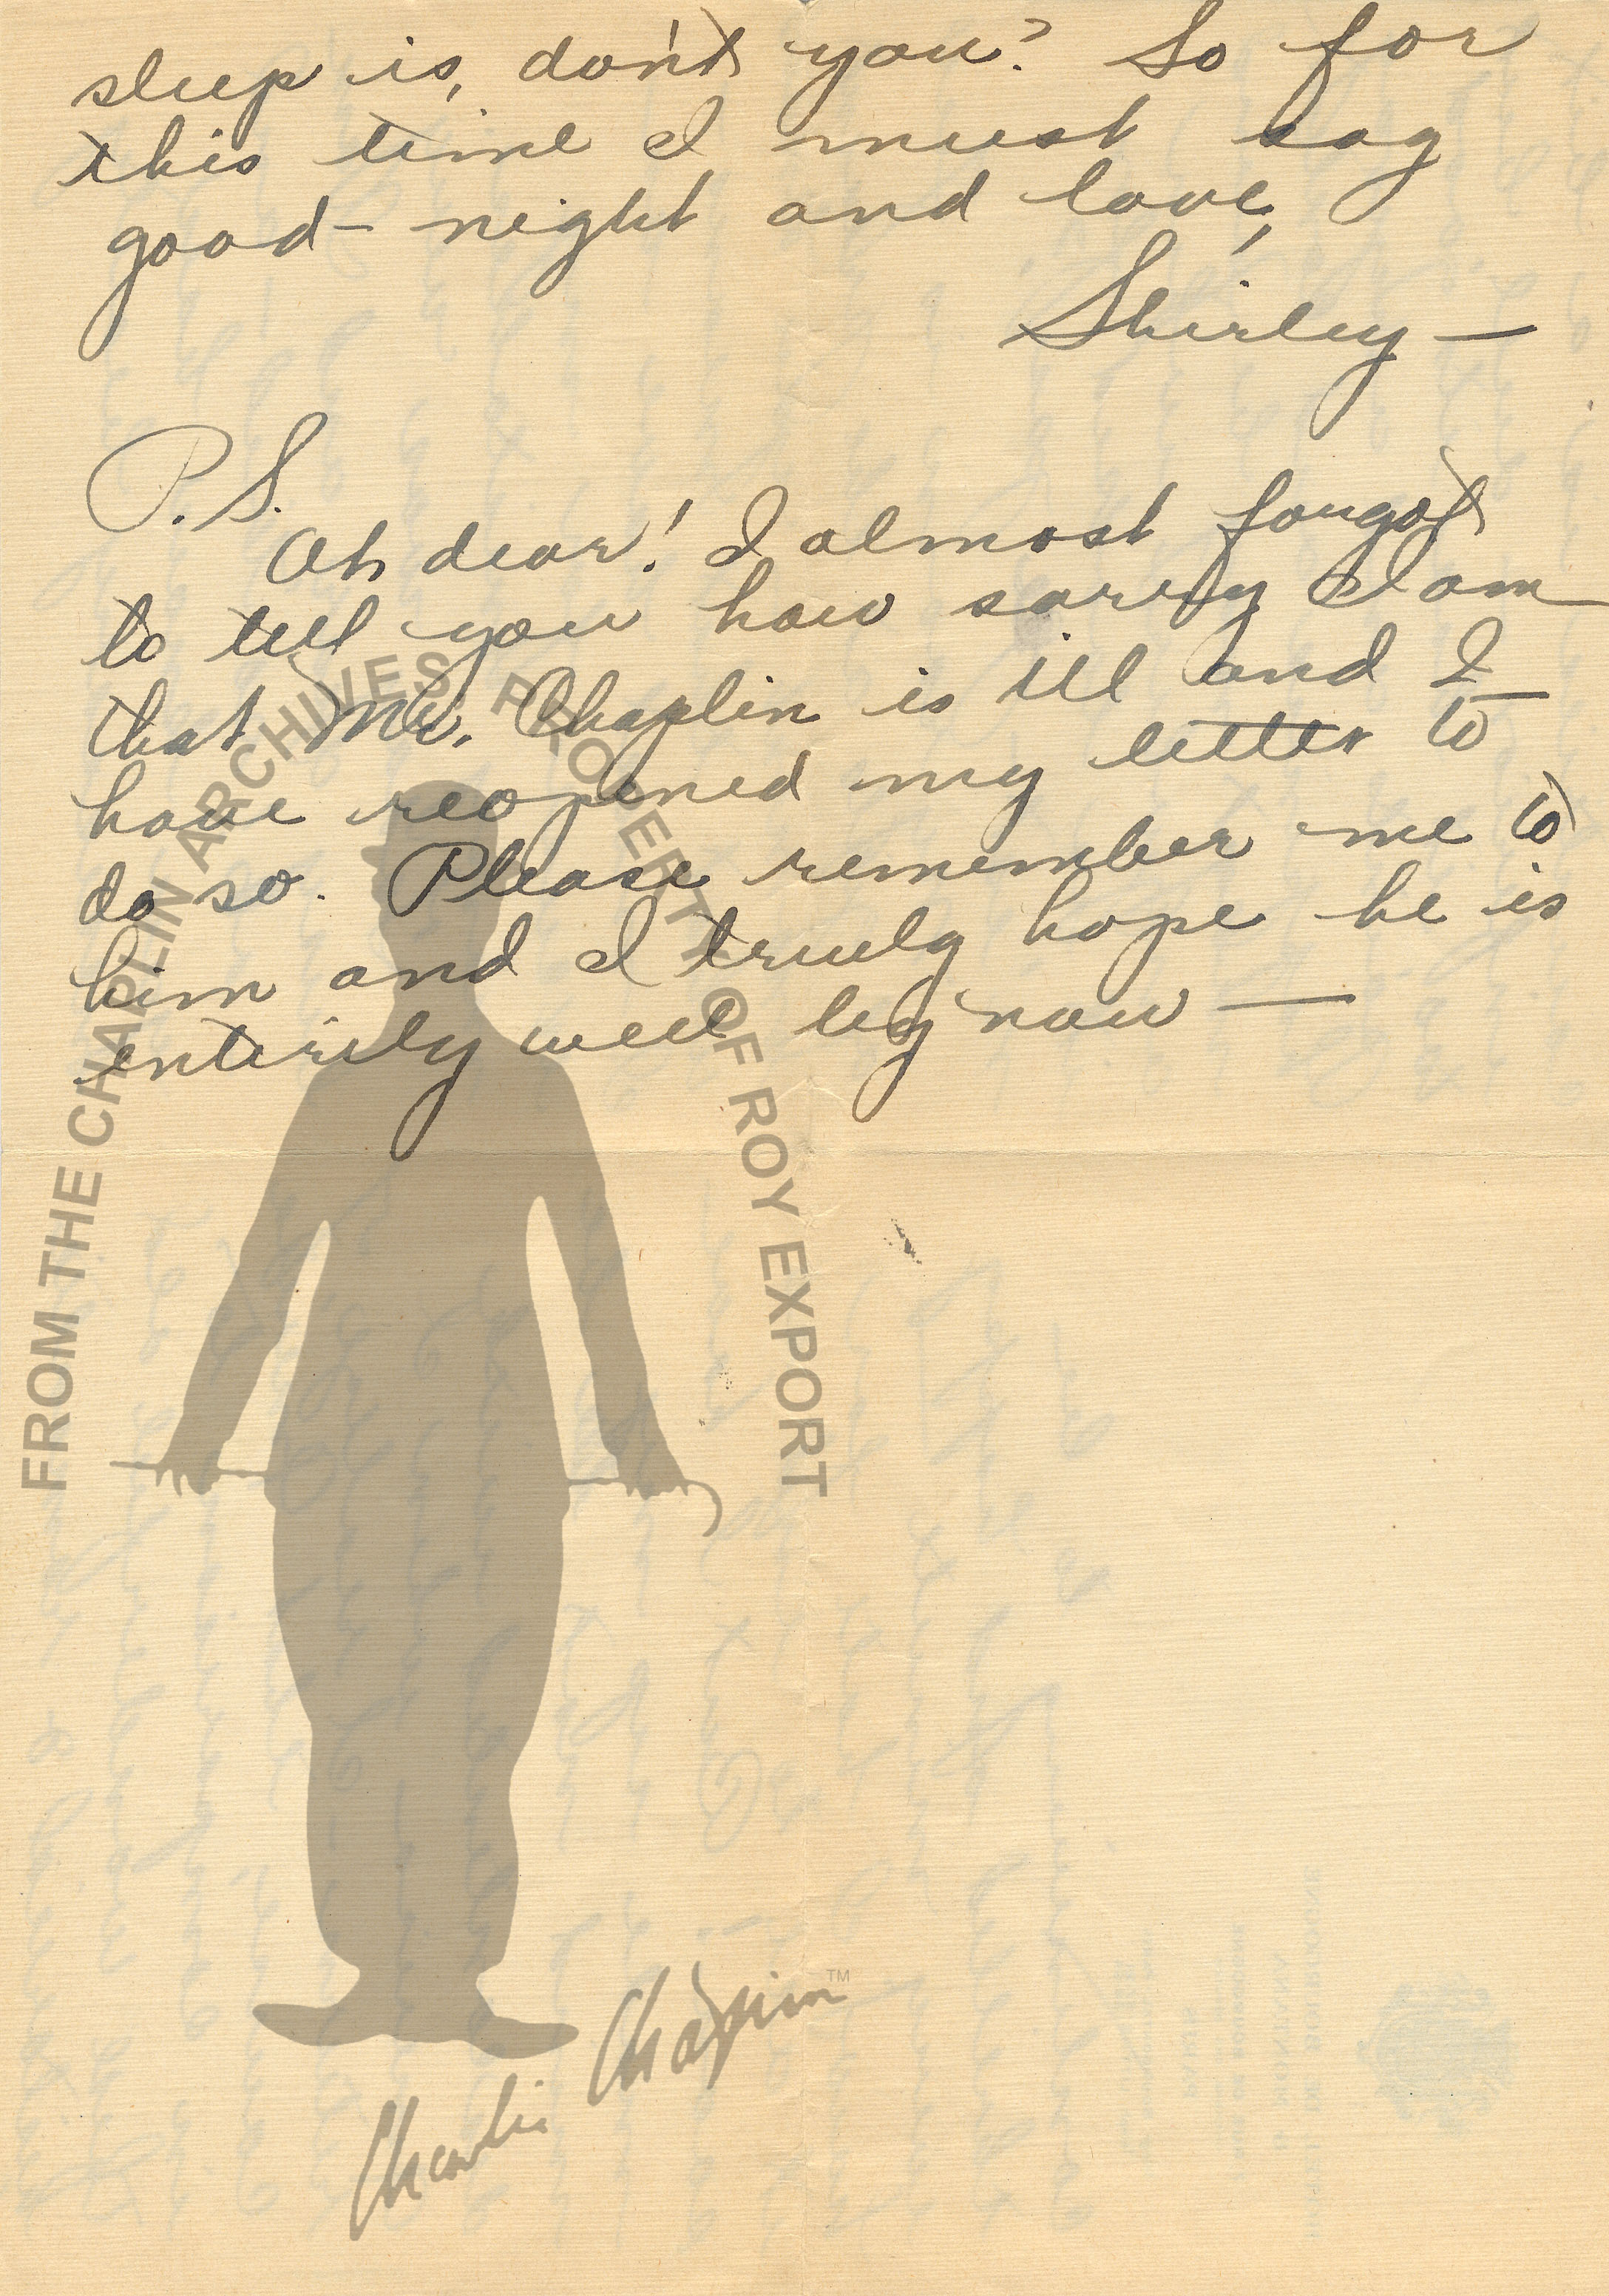 sleep is, don't you? So for
this time I must say
good-night and love,
Shirley —
P.S.
Oh dear! I almost forgot
to tell you how sorry I am
that Mr. Chaplin is ill and I
have reopened my letter to
do so. Please remember me to
him and I truely hope he is
entirely well by now —
FROM THE CHAPLIN ARCHIVES PROPERTY OF ROY EXPORT
Charlie Chaplin TM